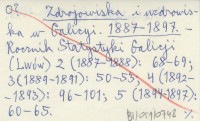 02 Zdrojowiska i uzdrowis-
ka w Galicji. 1887-1897. -
Rocznik Statystyki Galicji
(Lwów) 2 (1887-1888): 68-69;
3 (1889-1891): 50-53; 4 (1892
-1893): 96-101; 5 (1894-1897):
60-65.